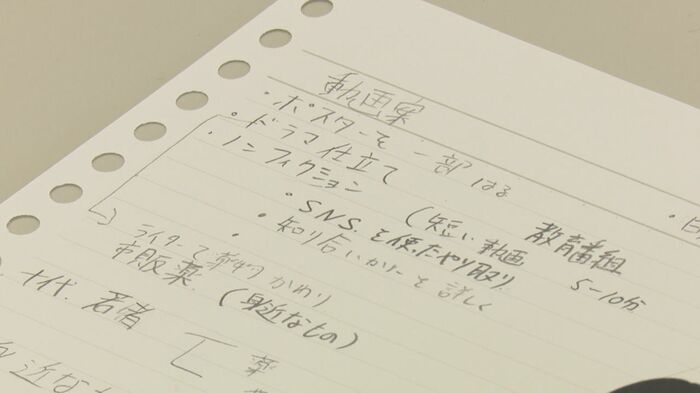 動画案
・ポスターを一部はる
・ドラマ仕立て
・ノンフィクション (短い動画 教育番組 5-10分
・SNSを使ったやり取り
・知り合いから を詳しく
ライターで
市販薬 (身近なもの)
十代、若者 薬
近な